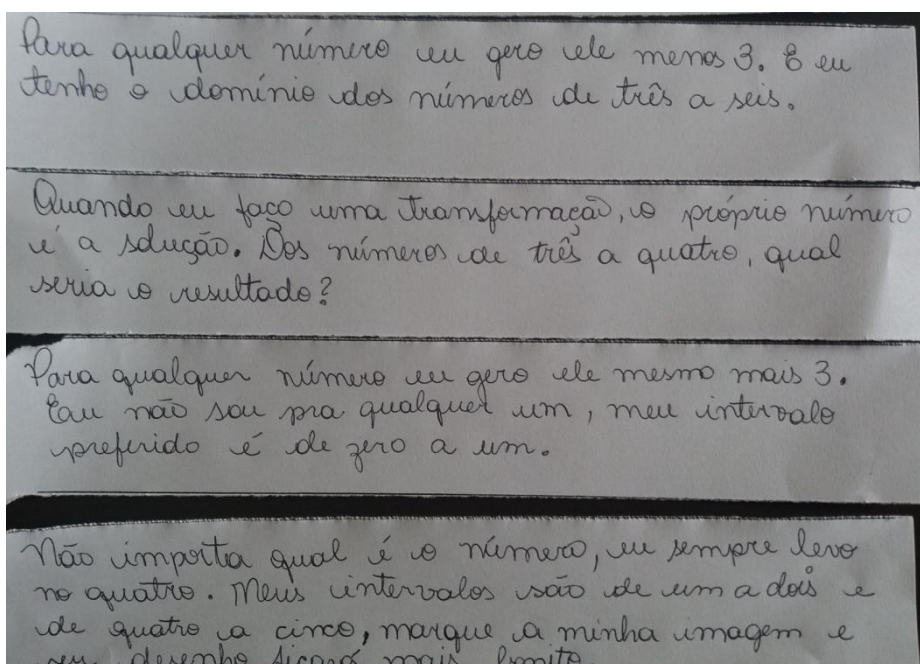 Para qualquer número eu gero ele menos 3. E eu
tenho o domínio dos números de três a seis.
Quando eu faço uma transformação, o próprio número
é a solução. Dos números de três a quatro, qual
seria o resultado?
Para qualquer número eu gero ele mesmo mais 3.
Eu não sou pra qualquer um, meu intervalo
preferido é de zero a um.
Não importa qual é o número, eu sempre levo
no quatro. Meus intervalos são de um a dois e
de quatro a cinco, marque a minha imagem e
seu desenho ficará mais bonito